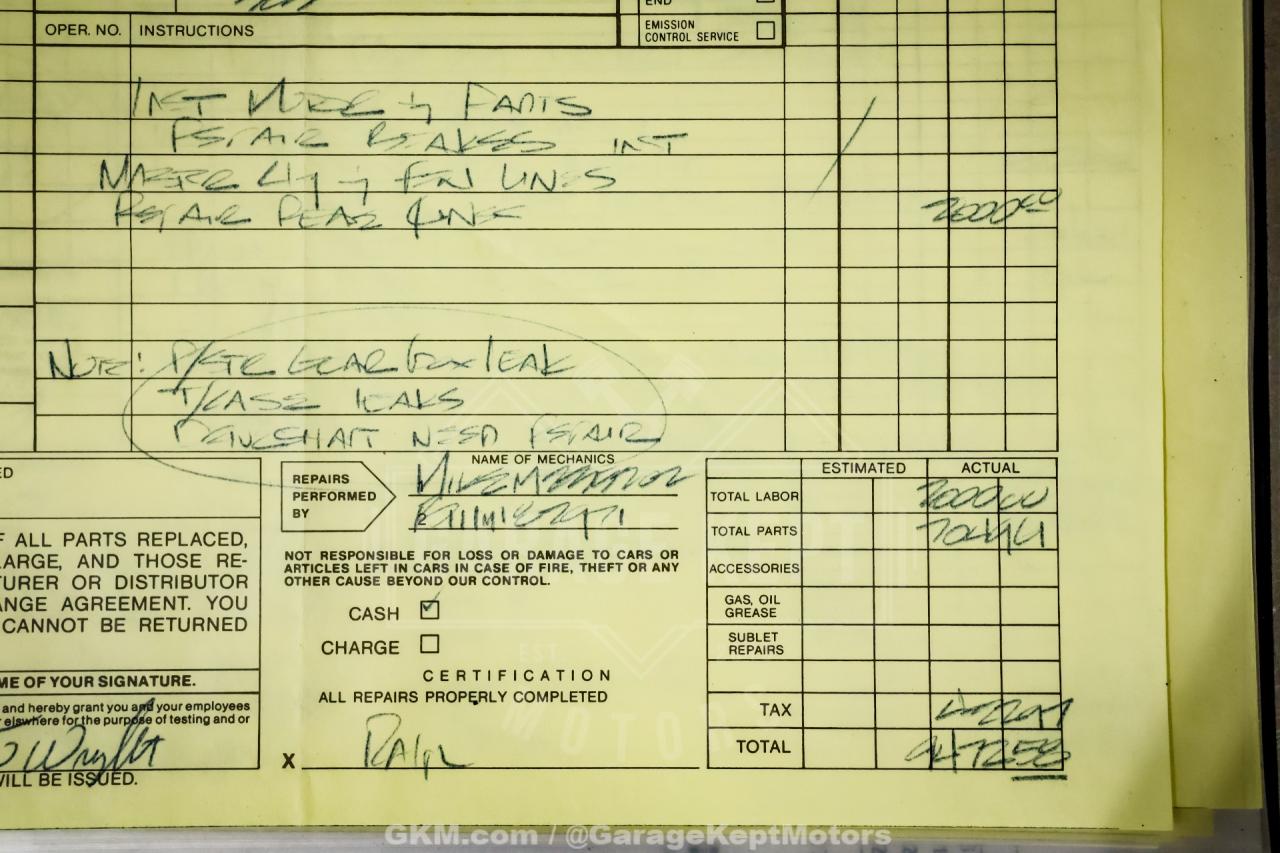 END
OPER. NO. INSTRUCTIONS
EMISSION
CONTROL SERVICE
INST & PARTS
REPAIR BRAKES INST
MASTER CYL & LINES
REPAIR REAR
2000.00
NOTE: P/STR GEAR BOX LEAK
T/CASE LEAKS
DRIVESHAFT NEED REPAIR
ED
F ALL PARTS REPLACED,
LARGE, AND THOSE RE-
TURER OR DISTRIBUTOR
ANGE AGREEMENT. YOU
CANNOT BE RETURNED
ME OF YOUR SIGNATURE.
and hereby grant you and your employees
elswhere for the purpose of testing and or
Wright
WILL BE ISSUED.
REPAIRS
PERFORMED
BY
NAME OF MECHANICS
MIKE
NOT RESPONSIBLE FOR LOSS OR DAMAGE TO CARS OR
ARTICLES LEFT IN CARS IN CASE OF FIRE, THEFT OR ANY
OTHER CAUSE BEYOND OUR CONTROL.
CASH ✓
CHARGE
CERTIFICATION
ALL REPAIRS PROPERLY COMPLETED
X RALPH
ESTIMATED ACTUAL
TOTAL LABOR 2000 00
TOTAL PARTS
ACCESSORIES
GAS, OIL
GREASE
SUBLET
REPAIRS
TAX
TOTAL
GARAGE KEPT
EST
MOTORS
GKM.com / @GarageKeptMotors